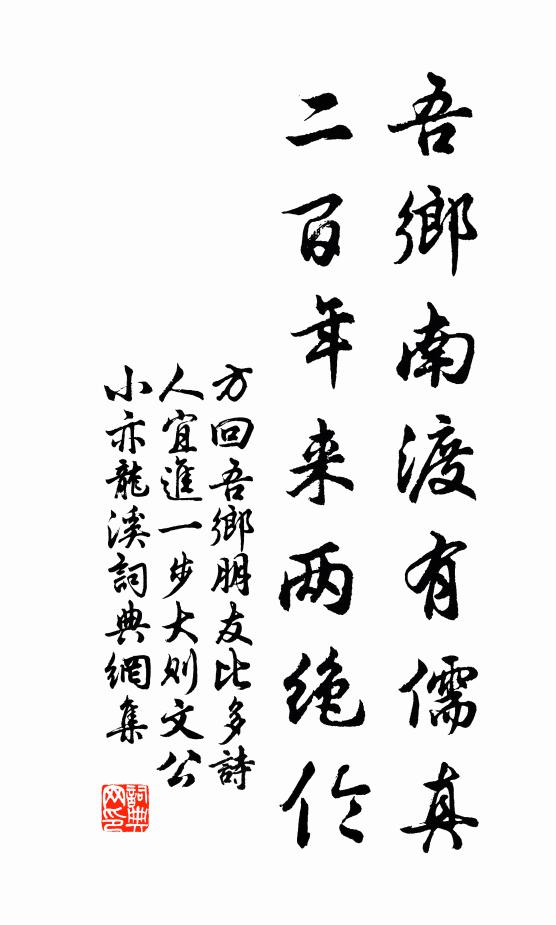 吾鄉南渡有儒真
二百年来两绝伦
方回吾鄉朋友比多詩
人宜進一步大则文公
小亦龍溪詞典網集
詞典网印